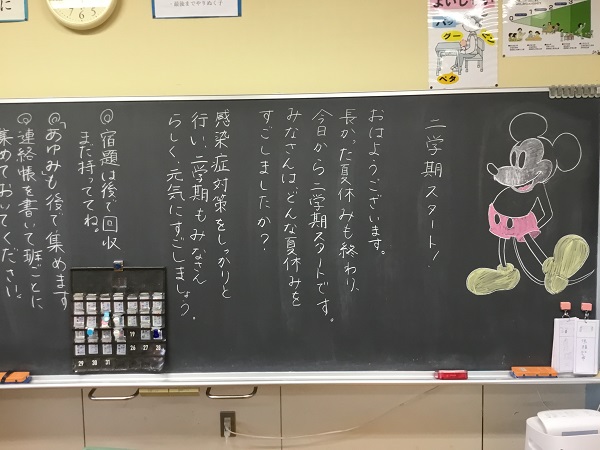 グー
ピン
ペタ
最後までやりぬく子
に
7 6 5
二学期スタート!
おはようございます。
長かった夏休みも終わり、
今日から二学期スタートです。
みなさんは、どんな夏休みを
すごしましたか?
感染症対策をしっかりと
行い、二学期もみなさん
らしく、元気にすごしましょう。
◎宿題は後で回収
まだ持っててね。
◎「あゆみ」も後で集めます
◎連絡帳を書いて班ごとに
集めておいてください。
19
26 27 28
29 30 31